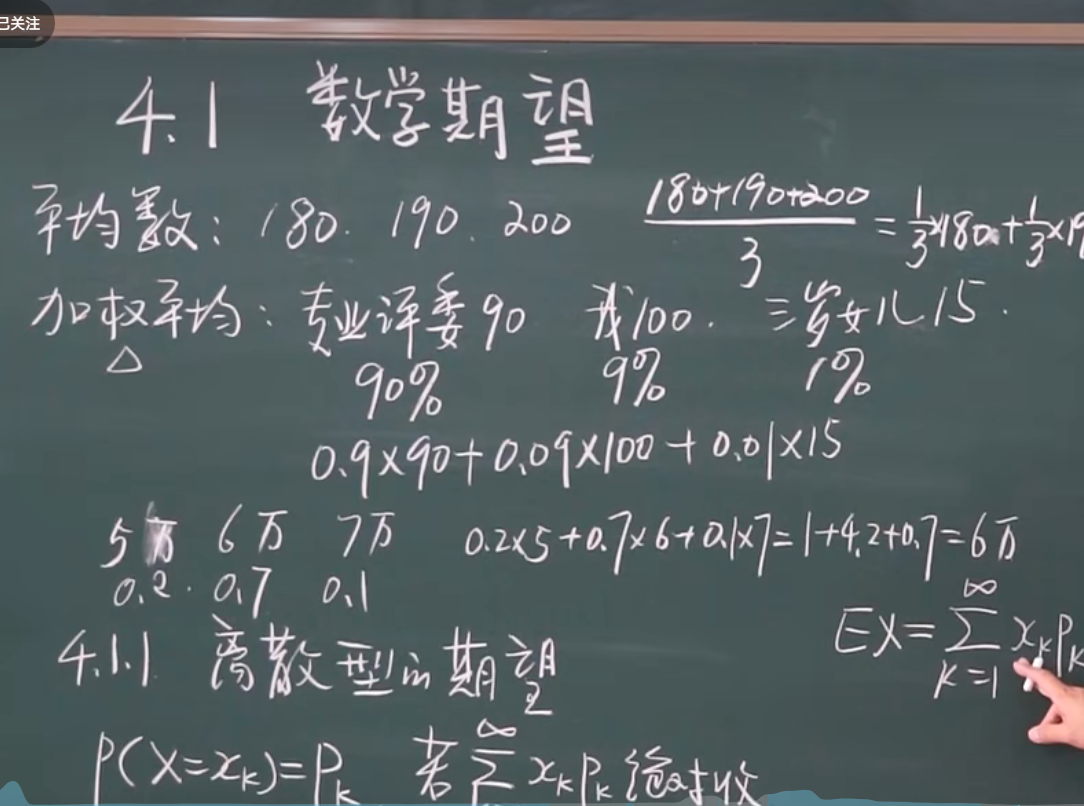 已关注
4.1 数学期望
平均数: 180. 190. 200 (180+190+200)/3 = 1/3×180+1/3×19
加权平均: 专业评委90 我100. 三岁女儿15.
△ 90% 9% 1%
0.9×90+0.09×100+0.01×15
5万 6万 7万 0.2×5+0.7×6+0.1×7=1+4.2+0.7=6万
0.2. 0.7 0.1
EX=∑_{k=1}^{∞} x_k p_k
4.1.1 离散型的期望
P(X=x_k)=P_k 若∑^{∞} x_k p_k 绝对收